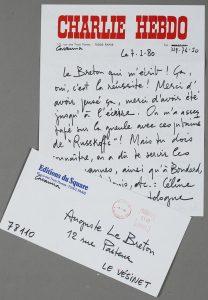 CHARLIE HEBDO
Le 7.1.80
Le Breton qui m'écrit! Ça,
oui, c'est la réussite! Merci d'
avoir pensé ça, merci d'avoir été
jusqu'à l'écrire. On m'a assez
tapé sur la gueule avec ces putains
de "Russkoffs"! Mais tu dois
connaître, on a dû te servir les
ainsi qu'à Boudard,
etc.: Céline
Editions du Square
Cavanna
78110
Auguste Le Breton
12 rue Pasteur
LE VÉSINET